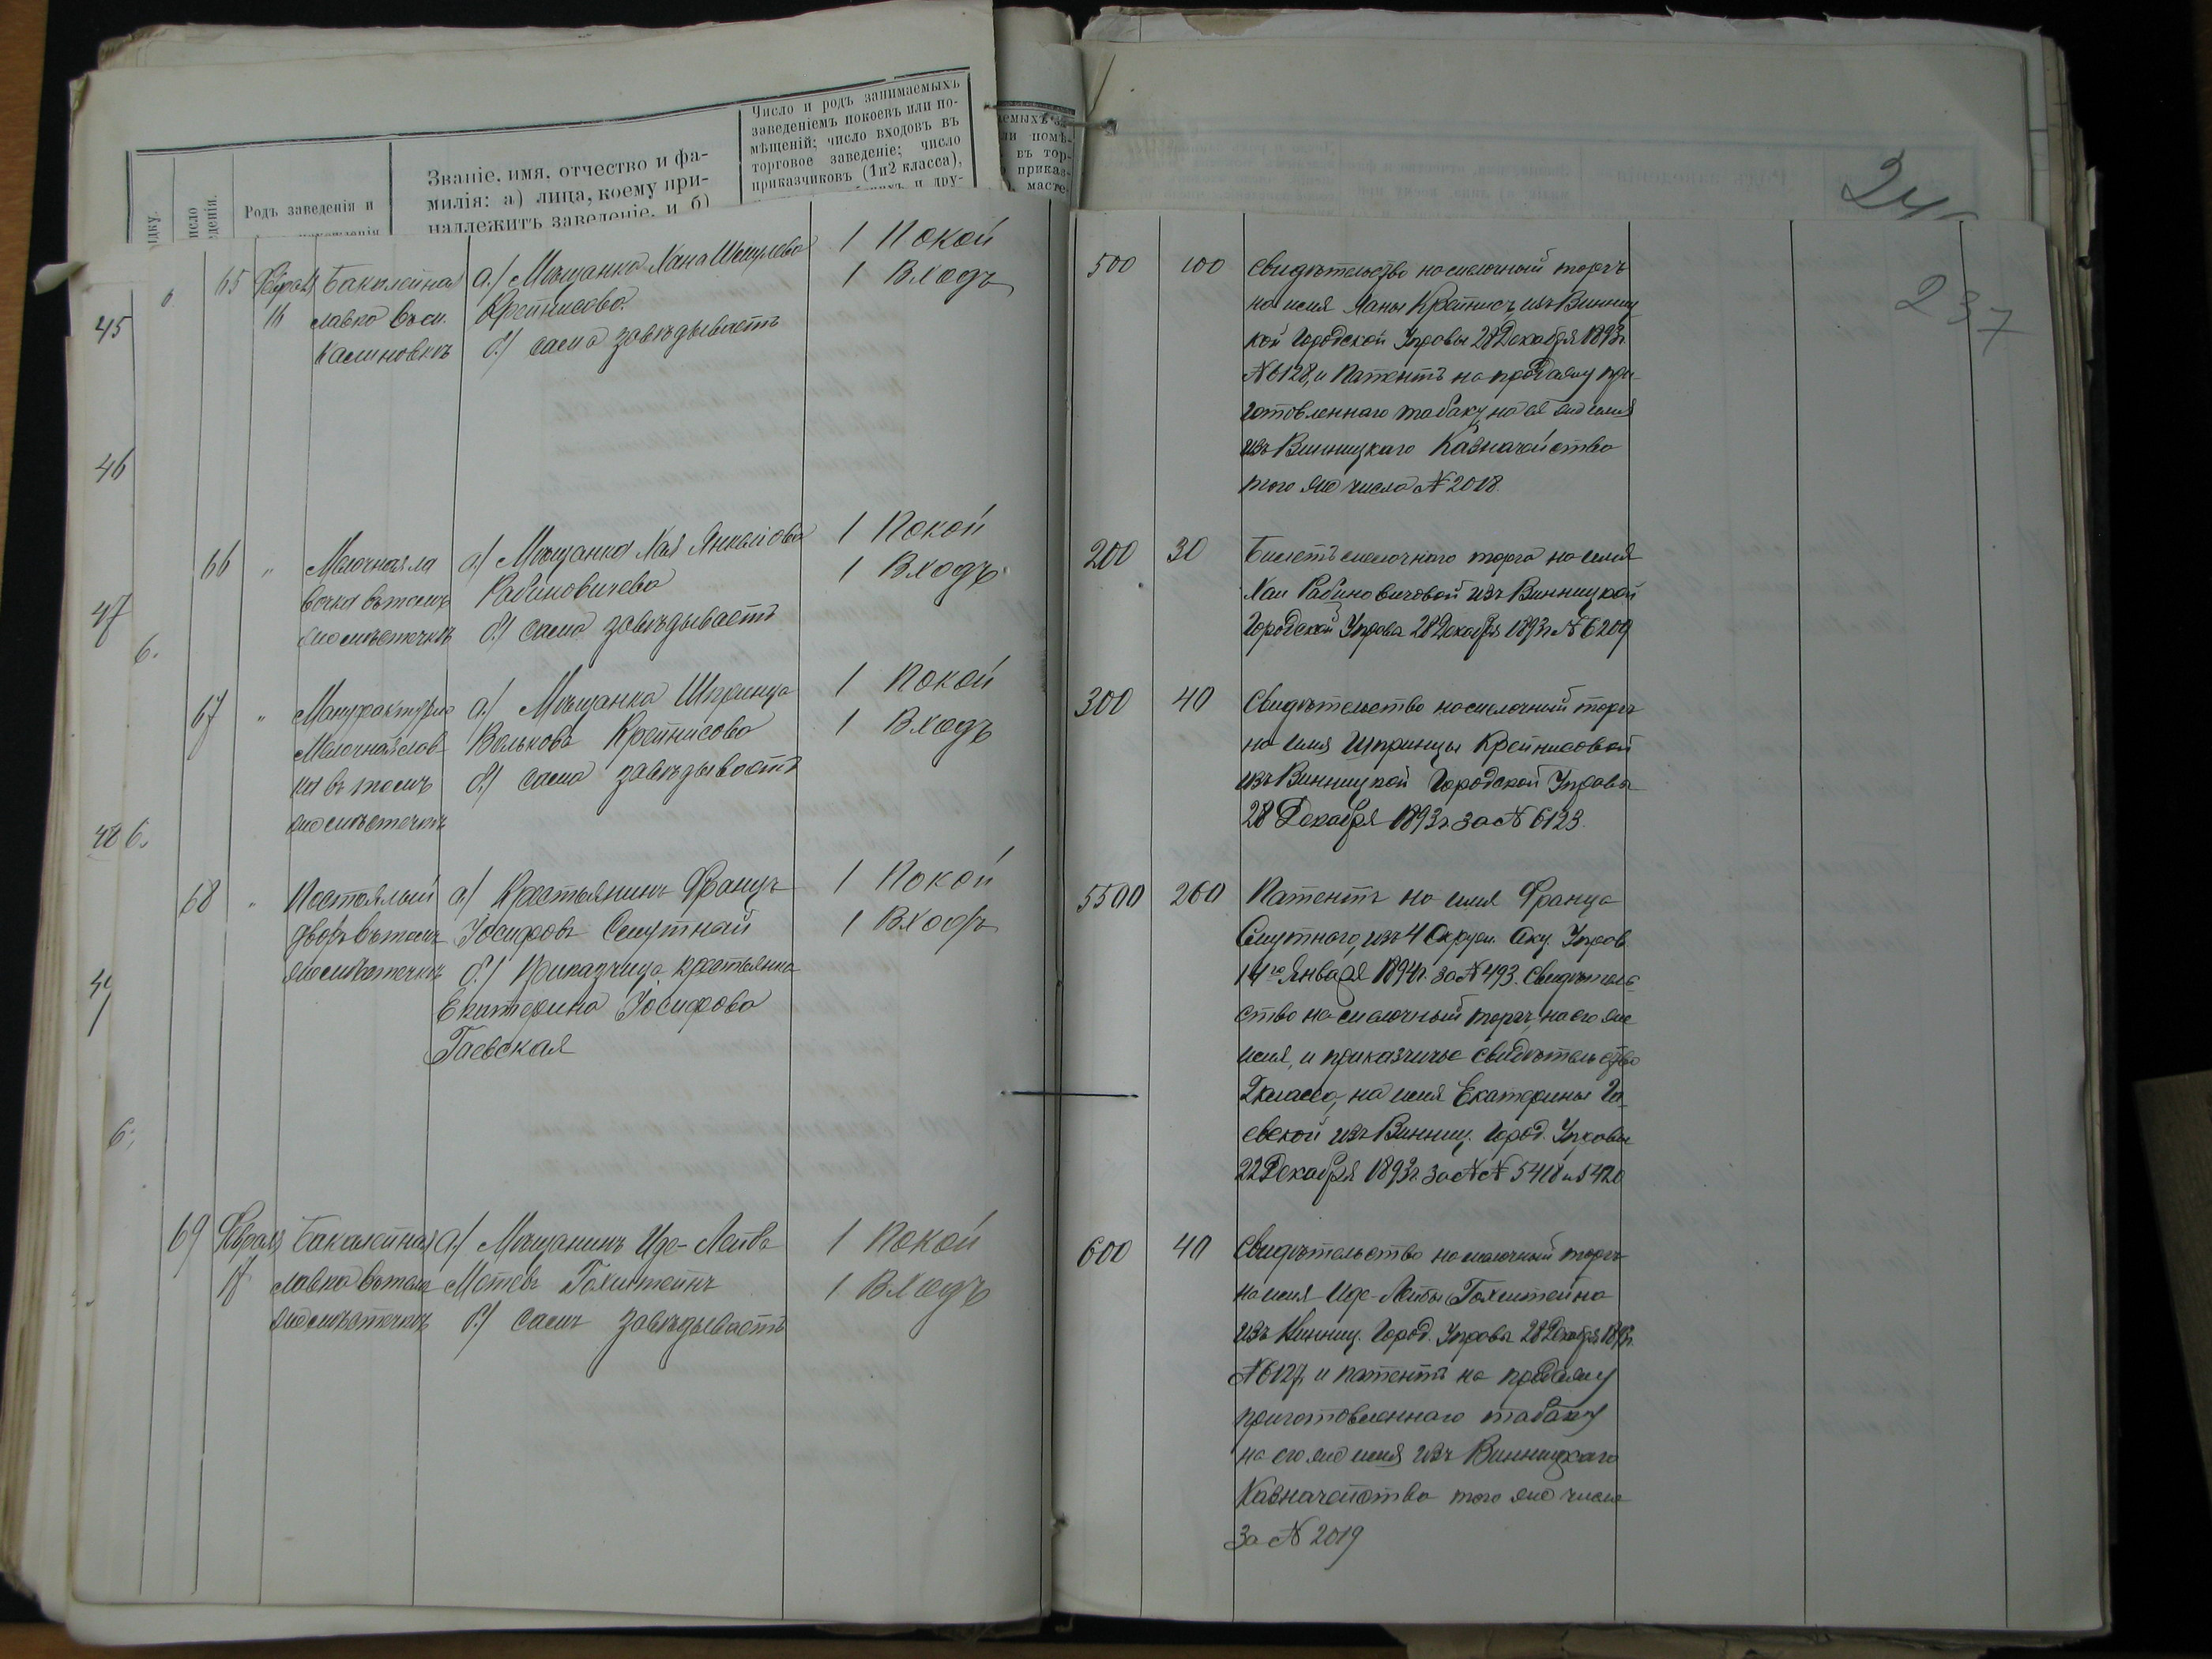 Родъ заведенія и
Званіе, имя, отчество и фа-
милія: а) лица, коему при-
надлежитъ заведеніе, и б)
Число и родъ занимаемыхъ
заведеніемъ покоевъ или по-
мѣщеній; число входовъ въ
торговое заведеніе; число
приказчиковъ (1 и 2 класса),
237
45
46
47
48
49
65 Февраля
16
Бакалейная
лавка въ м.
Калиновкѣ
а) Мѣщанка Хана
Крейнисова
б) сама завѣдываетъ
1 Покой
1 Входъ
500 100
Свидѣтельство на мелочный торгъ
на имя Ханы Крейнисъ, изъ Винниц
кой Городской Управы 28 Декабря 1893г.
№ 6128, и Патентъ на продажу при-
готовленнаго табаку, на ея же имя
изъ Винницкаго Казначейства
того же числа № 2018.
66 "
Мелочная ла
вочка въ томъ
же мѣстечкѣ
а) Мѣщанка Хая Янкелiова
Рабиновичева
б) сама завѣдываетъ
1 Покой
1 Входъ
200 30
Билетъ мелочнаго торга на имя
Хаи Рабиновичовой изъ Винницкой
Городской Управы 28 Декабря 1893г № 6209
67 "
Мануфактурно
Мелочная лав
ка въ томъ
же мѣстечкѣ
а) Мѣщанка Шпринца
Волькова Крейнисова
б) сама завѣдываетъ
1 Покой
1 Входъ
300 40
Свидѣтельство на мелочный торгъ
на имя Шпринцы Крейнисовой
изъ Винницкой Городской Управы
28 Декабря 1893г за № 6123.
68 "
Постоялый
дворъ въ томъ
же мѣстечкѣ
а) Крестьянинъ Францъ
Іосифовъ Смутный
б) Приказчица крестьянка
Екатерина Іосифова
Гаевская
1 Покой
1 Входъ
5500 260
Патентъ на имя Франца
Смутнаго, изъ 4 Окружн. Акц. Управ.
14го Января 1894г. за № 493. Свидѣтель-
ство на мелочный торгъ, на его же
имя, и приказчичье свидѣтельство
2 класса, на имя Екатерины Га-
евской изъ Винниц. Город. Управы
22 Декабря 1893г. за №№ 5418 и 5420
69 Февраля
17
Бакалейная
лавка въ томъ
же мѣстечкѣ
а) Мѣщанинъ Иде-Лейба
Мотевъ Гольштейнъ
б) самъ завѣдываетъ
1 Покой
1 Входъ
600 40
Свидѣтельство на мелочный торгъ
на имя Иде-Лейбы Гольштейна
изъ Винниц. Город. Управы 28 Декабря 1893г.
№ 6127, и патентъ на продажу
приготовленнаго табаку
на его же имя изъ Винницкаго
Казначейства того же числа
за № 2019